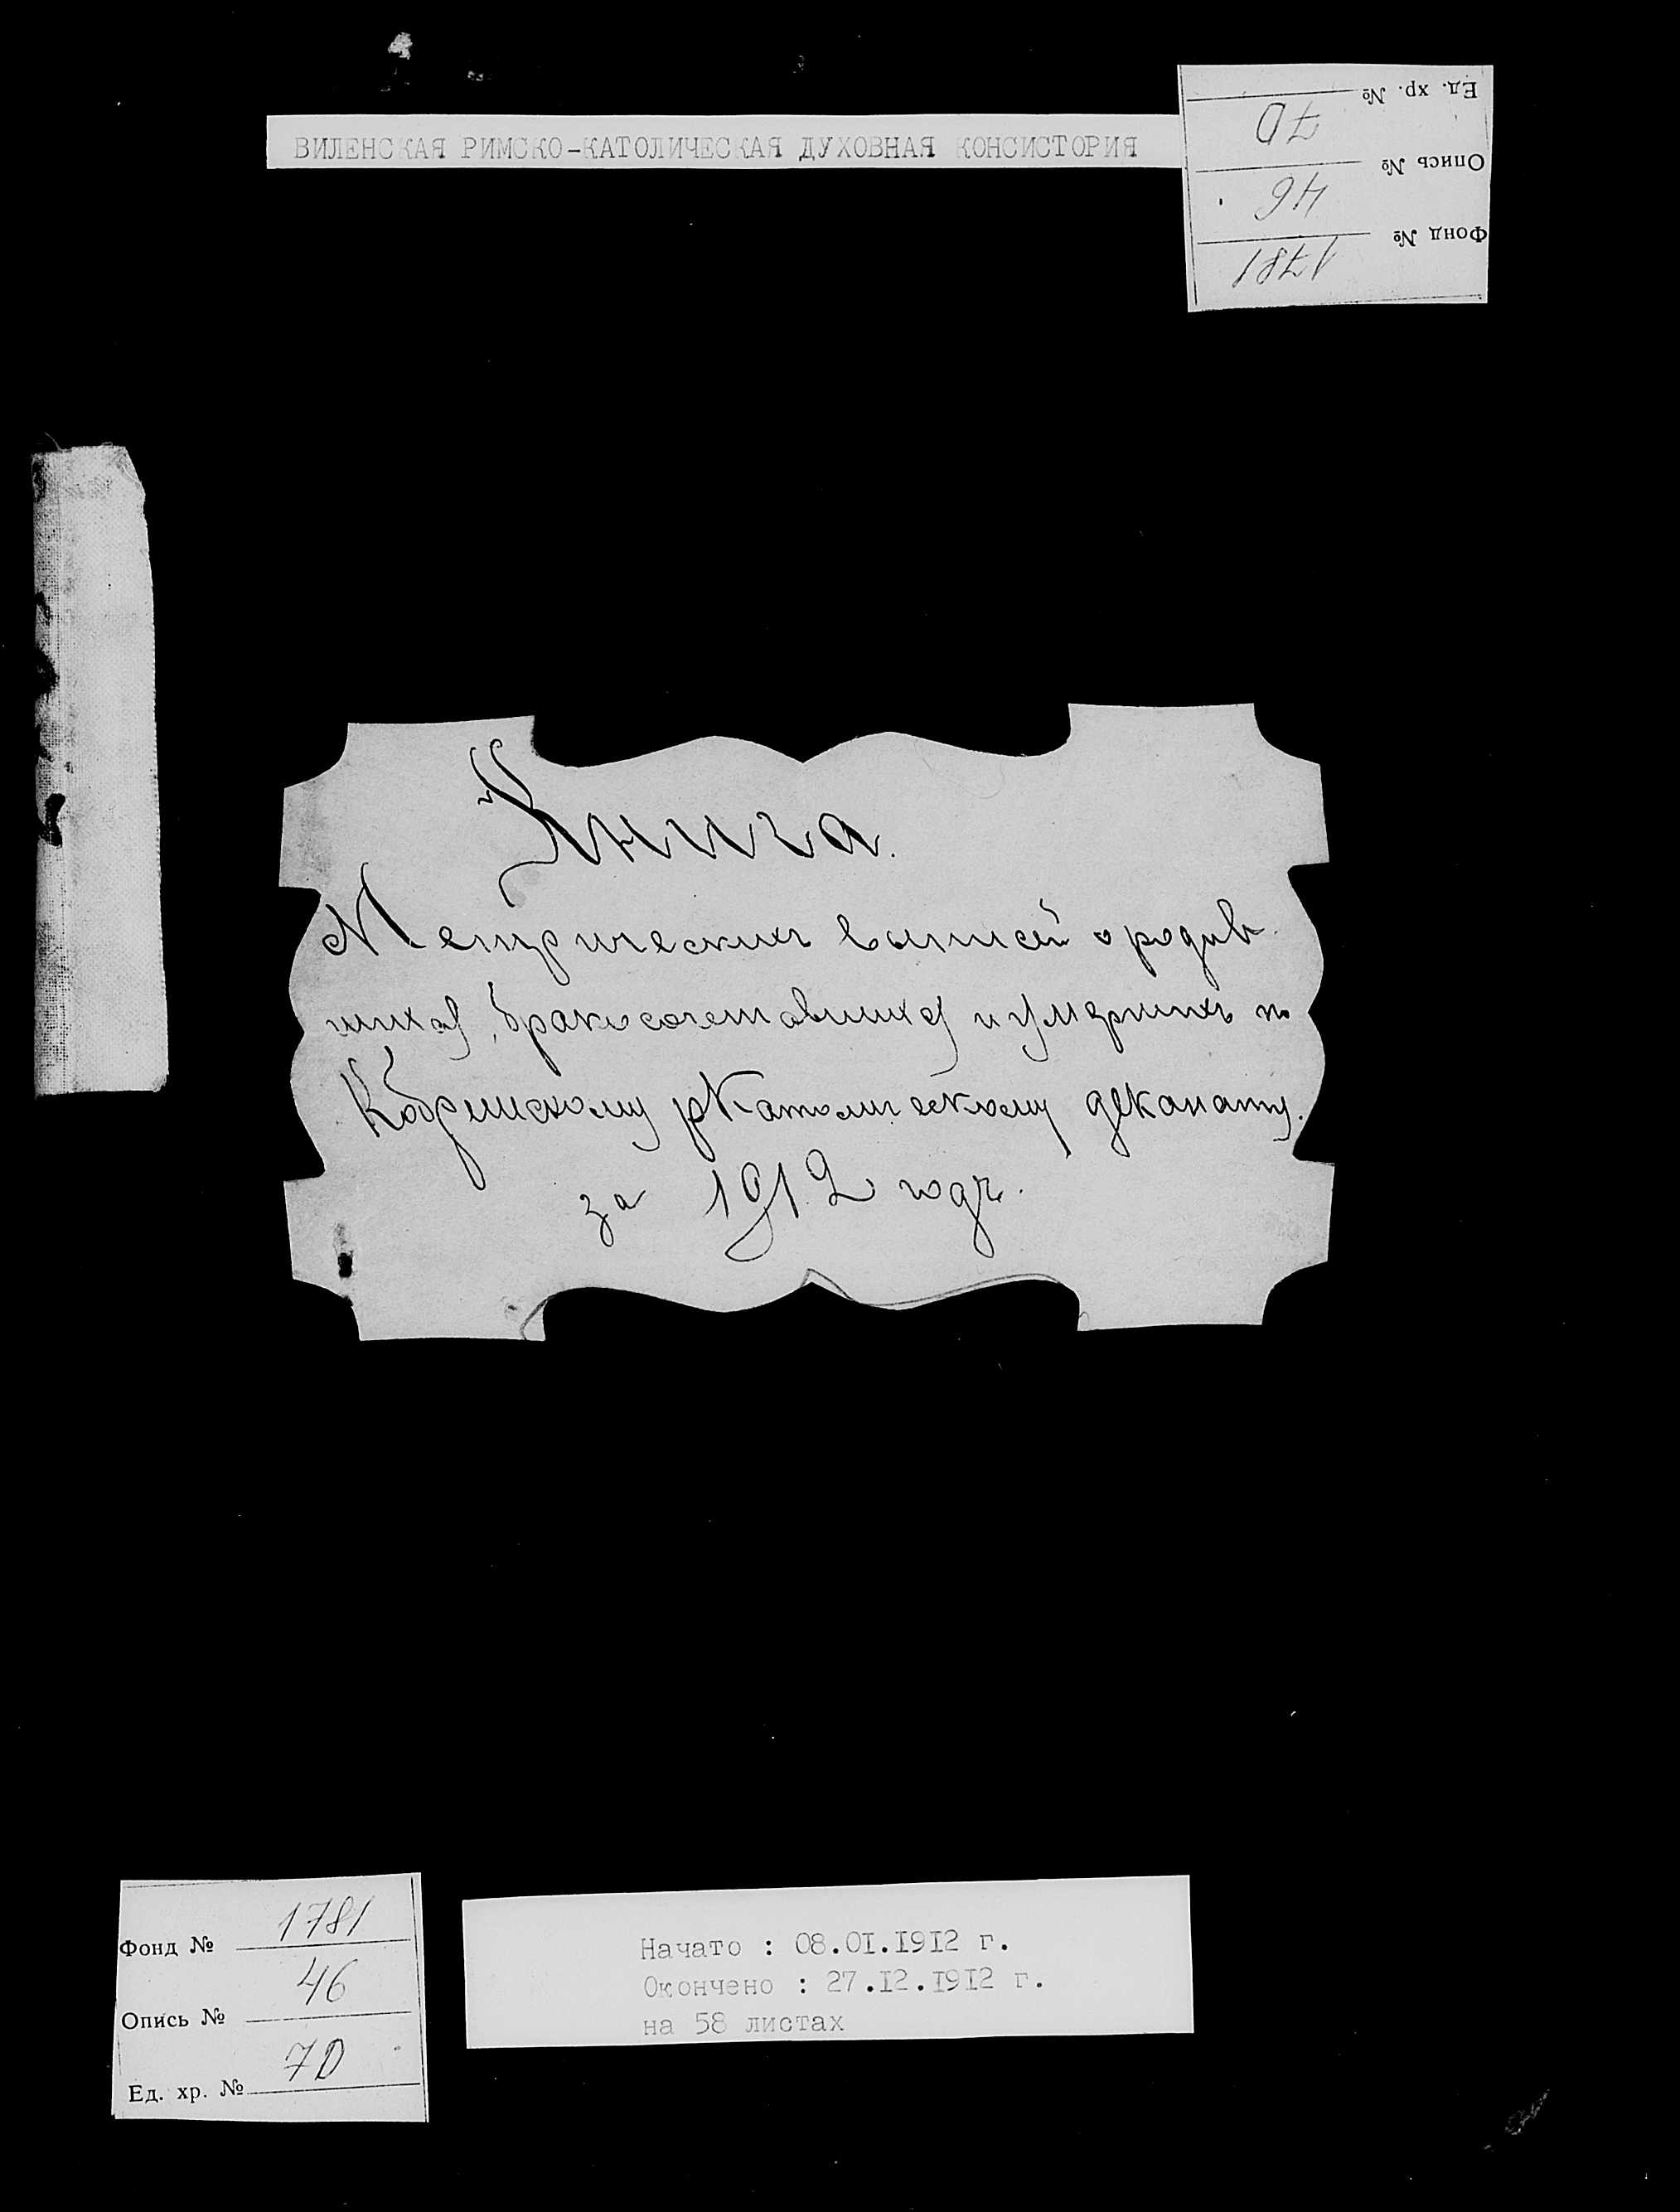 ВИЛЕНСКАЯ РИМСКО-КАТОЛИЧЕСКАЯ ДУХОВНАЯ КОНСИСТОРИЯ
Фонд № 1781
Опись № 46
Ед. хр. № 70
Книга.
Метрическихъ выписей о родив
шихся, бракосочетавшихся и умершихъ по
Кобринскому р Католическому деканату.
за 1912 годъ.
Фонд № 1781
Опись № 46
Ед. хр. № 70
Начато : 08.01.1912 г.
Окончено : 27.12.1912 г.
на 58 листах